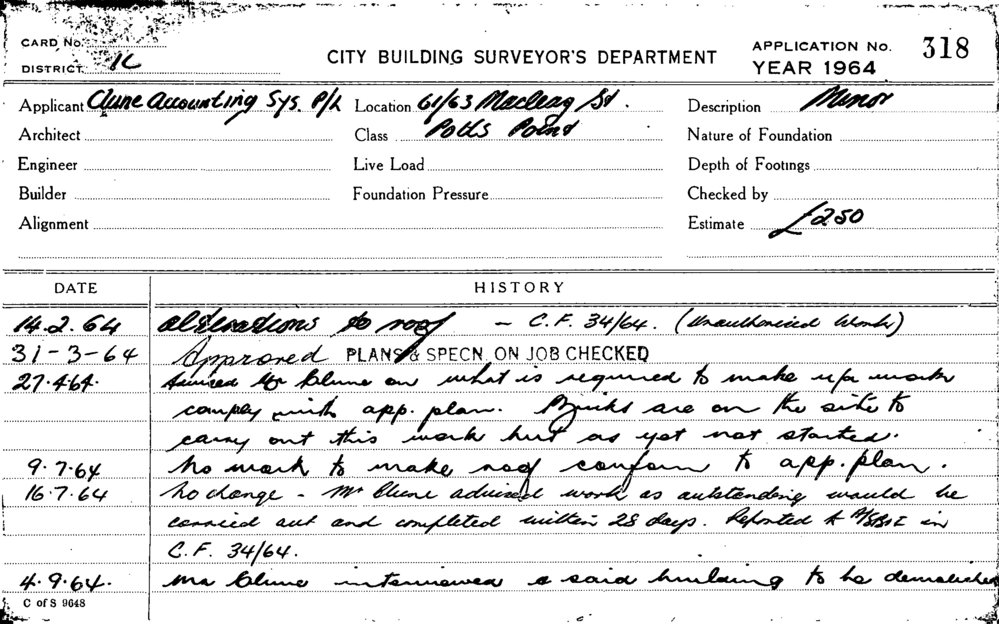 CARD No.
DISTRICT
CITY BUILDING SURVEYOR'S DEPARTMENT
APPLICATION No. 318
YEAR 1964
Applicant Clune Accounting Sys. P/L Location 61/63 Macleay St. Description Minor
Architect Class Potts Point Nature of Foundation
Engineer Live Load Depth of Footings
Builder Foundation Pressure Checked by
Alignment Estimate £250
DATE HISTORY
14.2.64 alterations to roof - C.F. 34/64. (Unauthorised Work)
31-3-64 Approved PLANS & SPECN. ON JOB CHECKED
27.4.64. Mr Clune on what is required to make work
comply with app. plan. Bricks are on the site to
carry out this work but as yet not started.
9.7.64 No work to make roof conform to app. plan.
16.7.64 No change - Mr Clune advised work as outstanding would be
carried out and completed within 28 days. Reported to in
C.F. 34/64.
4.9.64. Mr Clune interviewed & said building to be demolished
C of S 9648